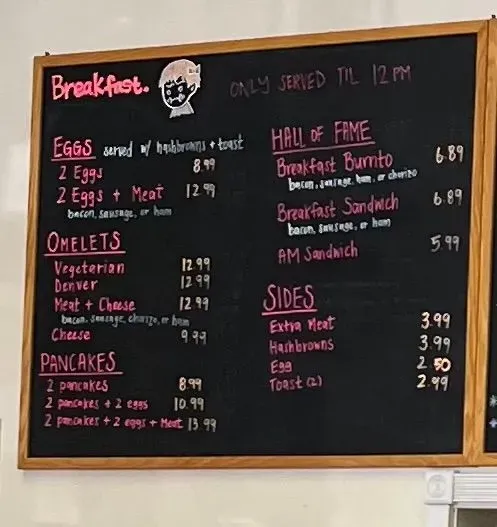 Breakfast.
ONLY SERVED TIL 12 PM
EGGS served w/ hashbrowns + toast
2 Eggs 8.99
2 Eggs + Meat 12.99
bacon, sausage, or ham
OMELETS
Vegetarian 12.99
Denver 12.99
Meat + Cheese 12.99
bacon, sausage, chorizo, or ham
Cheese 9.99
PANCAKES
2 pancakes 8.99
2 pancakes + 2 eggs 10.99
2 pancakes + 2 eggs + Meat 13.99
HALL OF FAME
Breakfast Burrito 6.89
bacon, sausage, ham, or chorizo
Breakfast Sandwich 6.89
bacon, sausage, or ham
AM Sandwich 5.99
SIDES
Extra Meat 3.99
Hashbrowns 3.99
Egg 2.50
Toast (2) 2.99